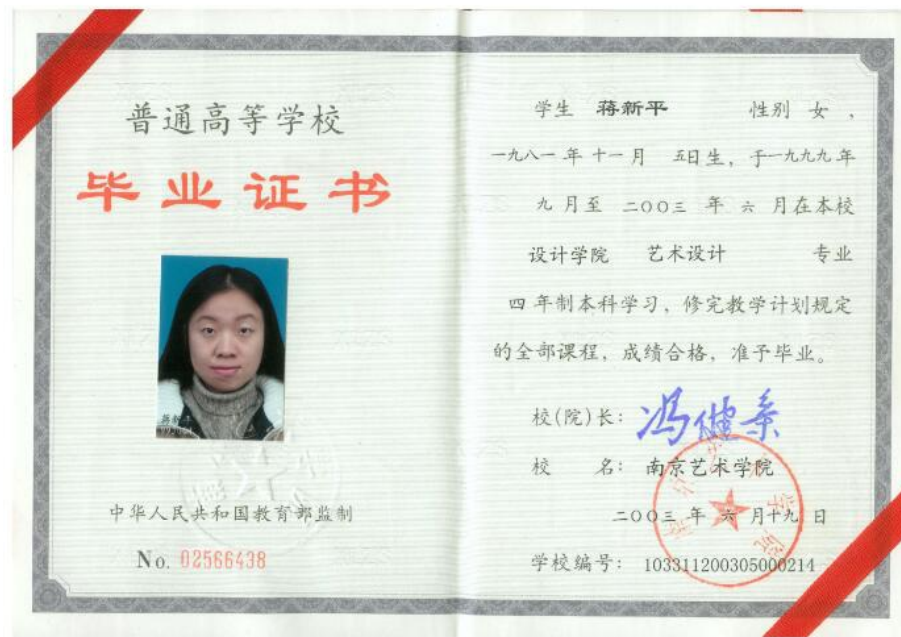 普通高等学校
毕业证书
中华人民共和国教育部监制
No. 02566438
学生 蒋新平 性别 女，
一九八一年十一月 五日生，于一九九九年
九月至 二〇〇三 年 六 月在本校
设计学院 艺术设计 专业
四 年制本科学习，修完教学计划规定
的全部课程，成绩合格，准予毕业。
校(院)长： 冯健亲
校 名： 南京艺术学院
二〇〇三 年 六 月十九 日
学校编号： 103311200305000214